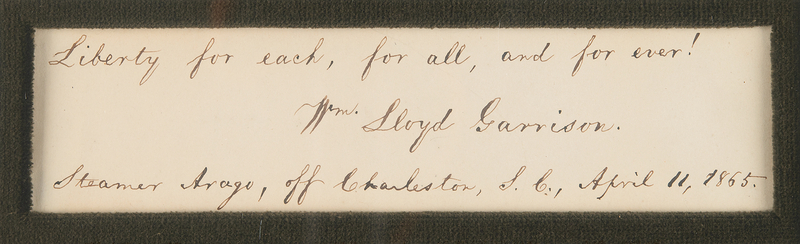 Liberty for each, for all, and for ever!
Wm. Lloyd Garrison.
Steamer Arago, off Charleston, S. C., April 11, 1865.